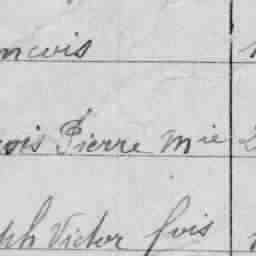 ncois
çois Pierre Mie
ph Victor fois